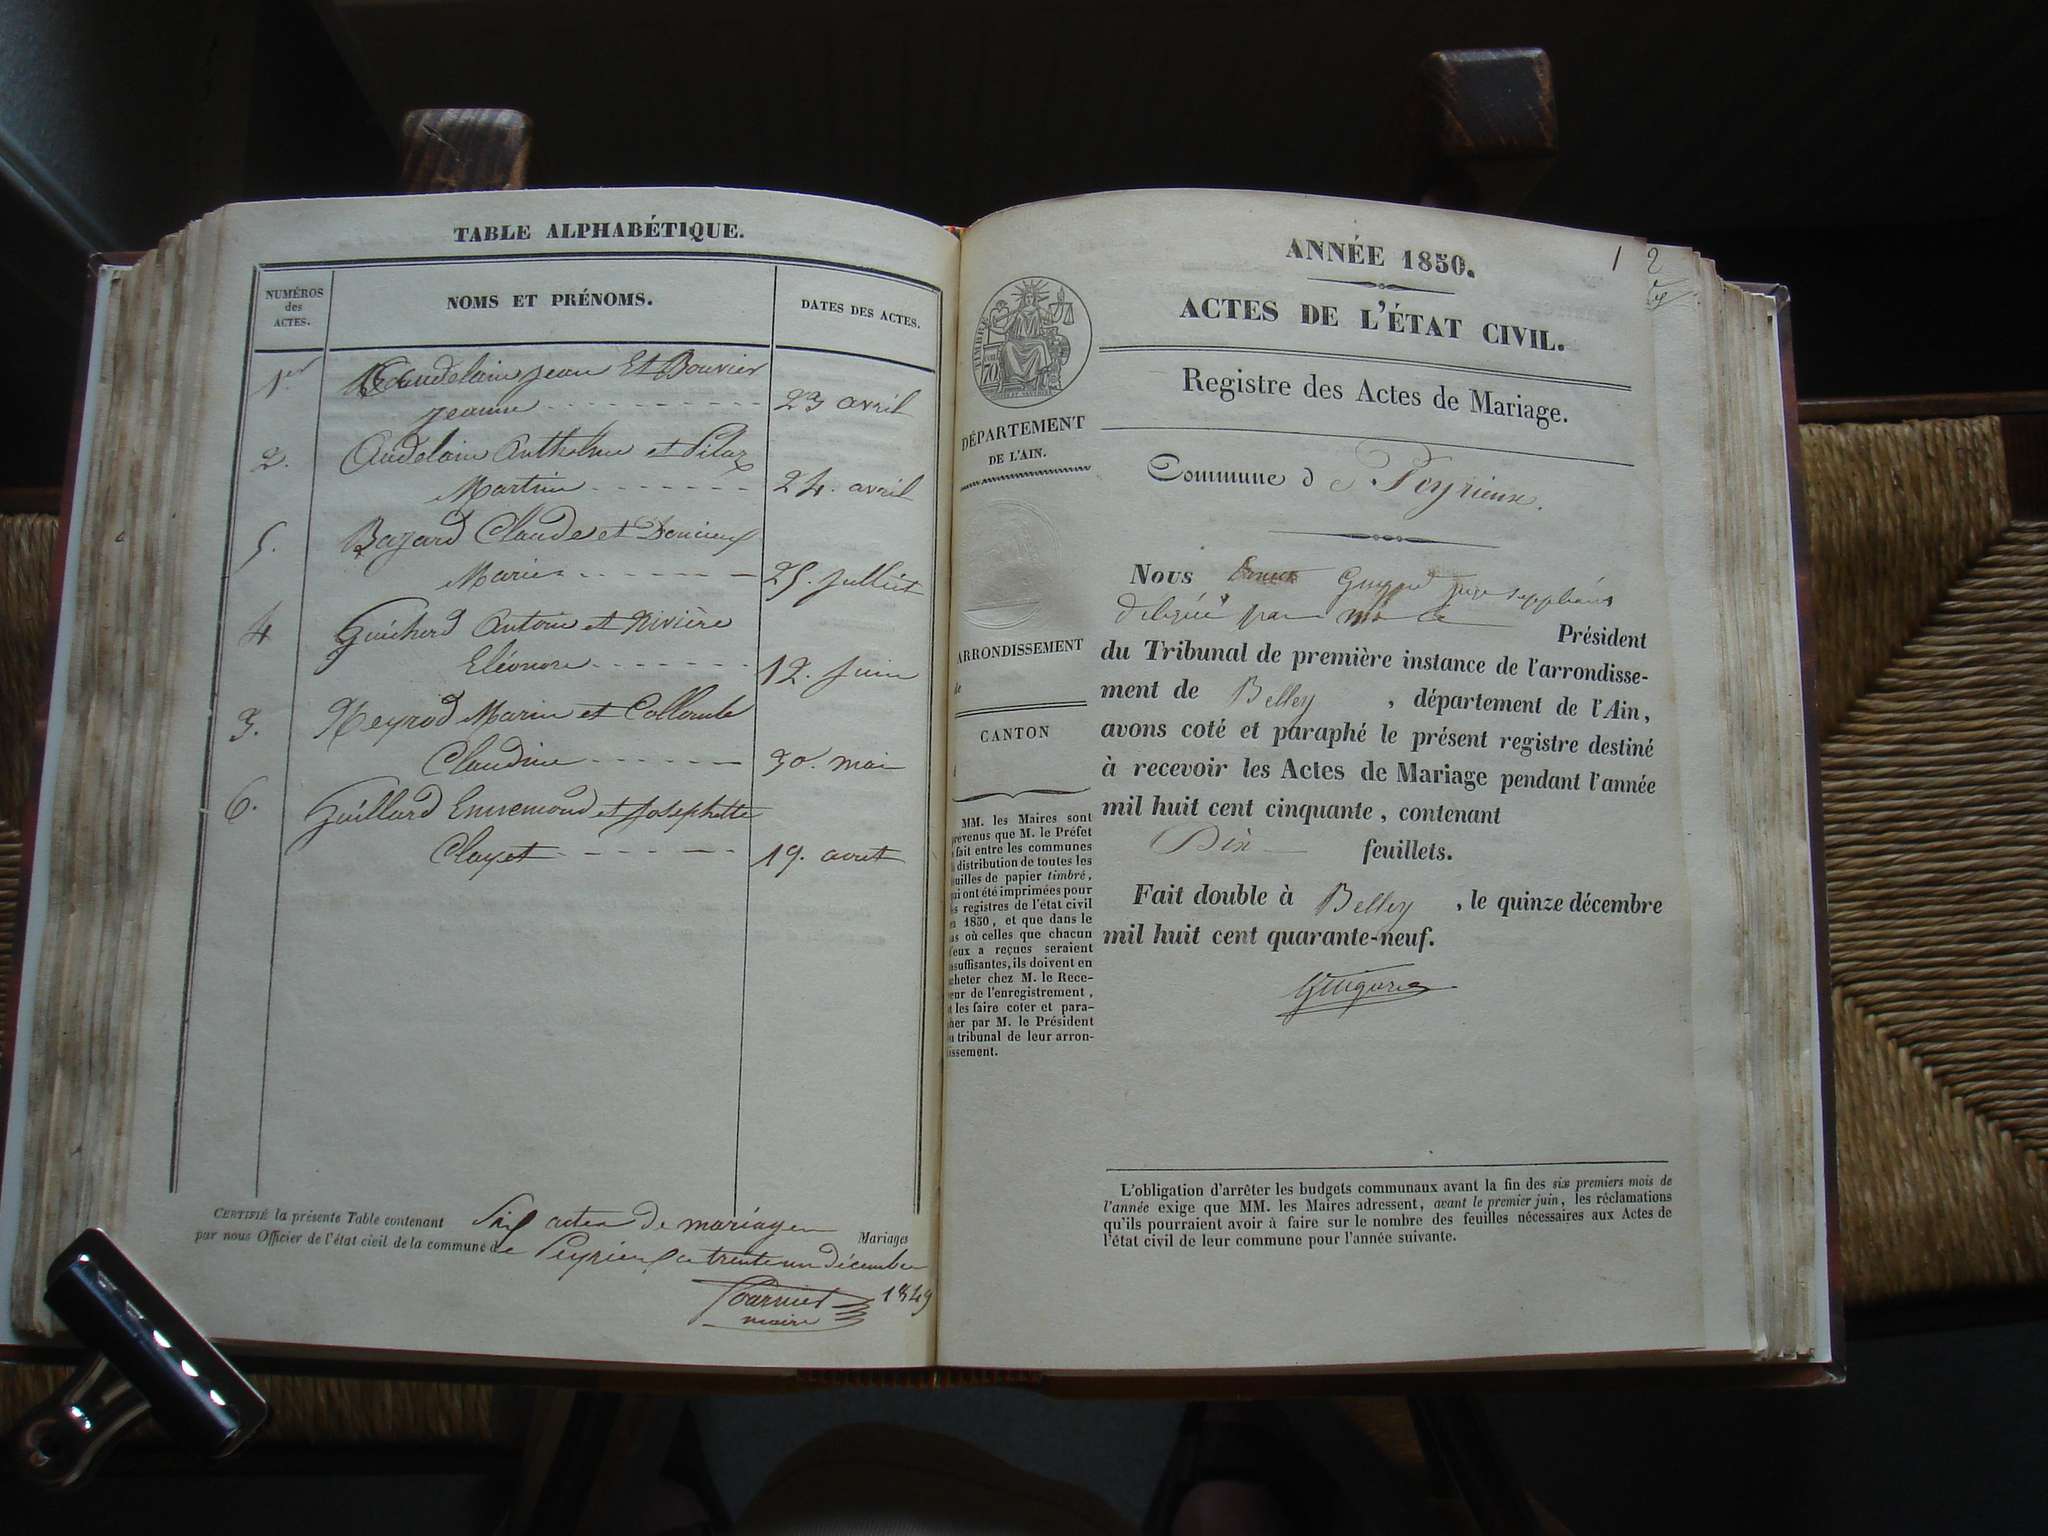 TABLE ALPHABÉTIQUE.
NUMÉROS
des
ACTES.
NOMS ET PRÉNOMS.
DATES DES ACTES.
1er
Audelain Jean Et Bouvier
Jeanne
23 avril
2.
Audelain Anthelme et Pilaz
Martine
24. avril
5.
Bazard Claude et
Marie
25. Julliet
4
Guichard Antoine et Rivière
Eléonore
12. Juin
3.
Neyrod Marin et Collomb
Claudine
30. mai
6.
Guillard Ennemond et Josephette
Clayet
19. aout
CERTIFIÉ la présente Table contenant Six actes de mariages Mariages
par nous Officier de l'état civil de la commune de Peyrieux ce trente un décembre
1849
maire
1
2
ANNÉE 1850.
ACTES DE L'ÉTAT CIVIL.
Registre des Actes de Mariage.
TIMBRE
70
DÉPARTEMENT
DE L'AIN.
Commune d e Peyrieux.
Nous juge suppléant
délégué par Mr le Président
du Tribunal de première instance de l'arrondisse-
ment de Belley , département de l'Ain,
avons coté et paraphé le présent registre destiné
à recevoir les Actes de Mariage pendant l'année
mil huit cent cinquante, contenant
Dix feuillets.
Fait double à Belley , le quinze décembre
mil huit cent quarante-neuf.
ARRONDISSEMENT
de
CANTON
MM. les Maires sont
prévenus que M. le Préfet
a fait entre les communes
distribution de toutes les
feuilles de papier timbré,
qui ont été imprimées pour
les registres de l'état civil
en 1850, et que dans le
cas où celles que chacun
d'eux a reçues seraient
insuffisantes, ils doivent en
acheter chez M. le Rece-
veur de l'enregistrement,
et les faire coter et para-
pher par M. le Président
du tribunal de leur arron-
dissement.
L'obligation d'arrêter les budgets communaux avant la fin des six premiers mois de
l'année exige que MM. les Maires adressent, avant le premier juin, les réclamations
qu'ils pourraient avoir à faire sur le nombre des feuilles nécessaires aux Actes de
l'état civil de leur commune pour l'année suivante.